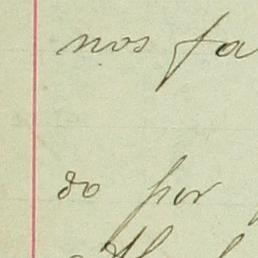 nos fa
do por